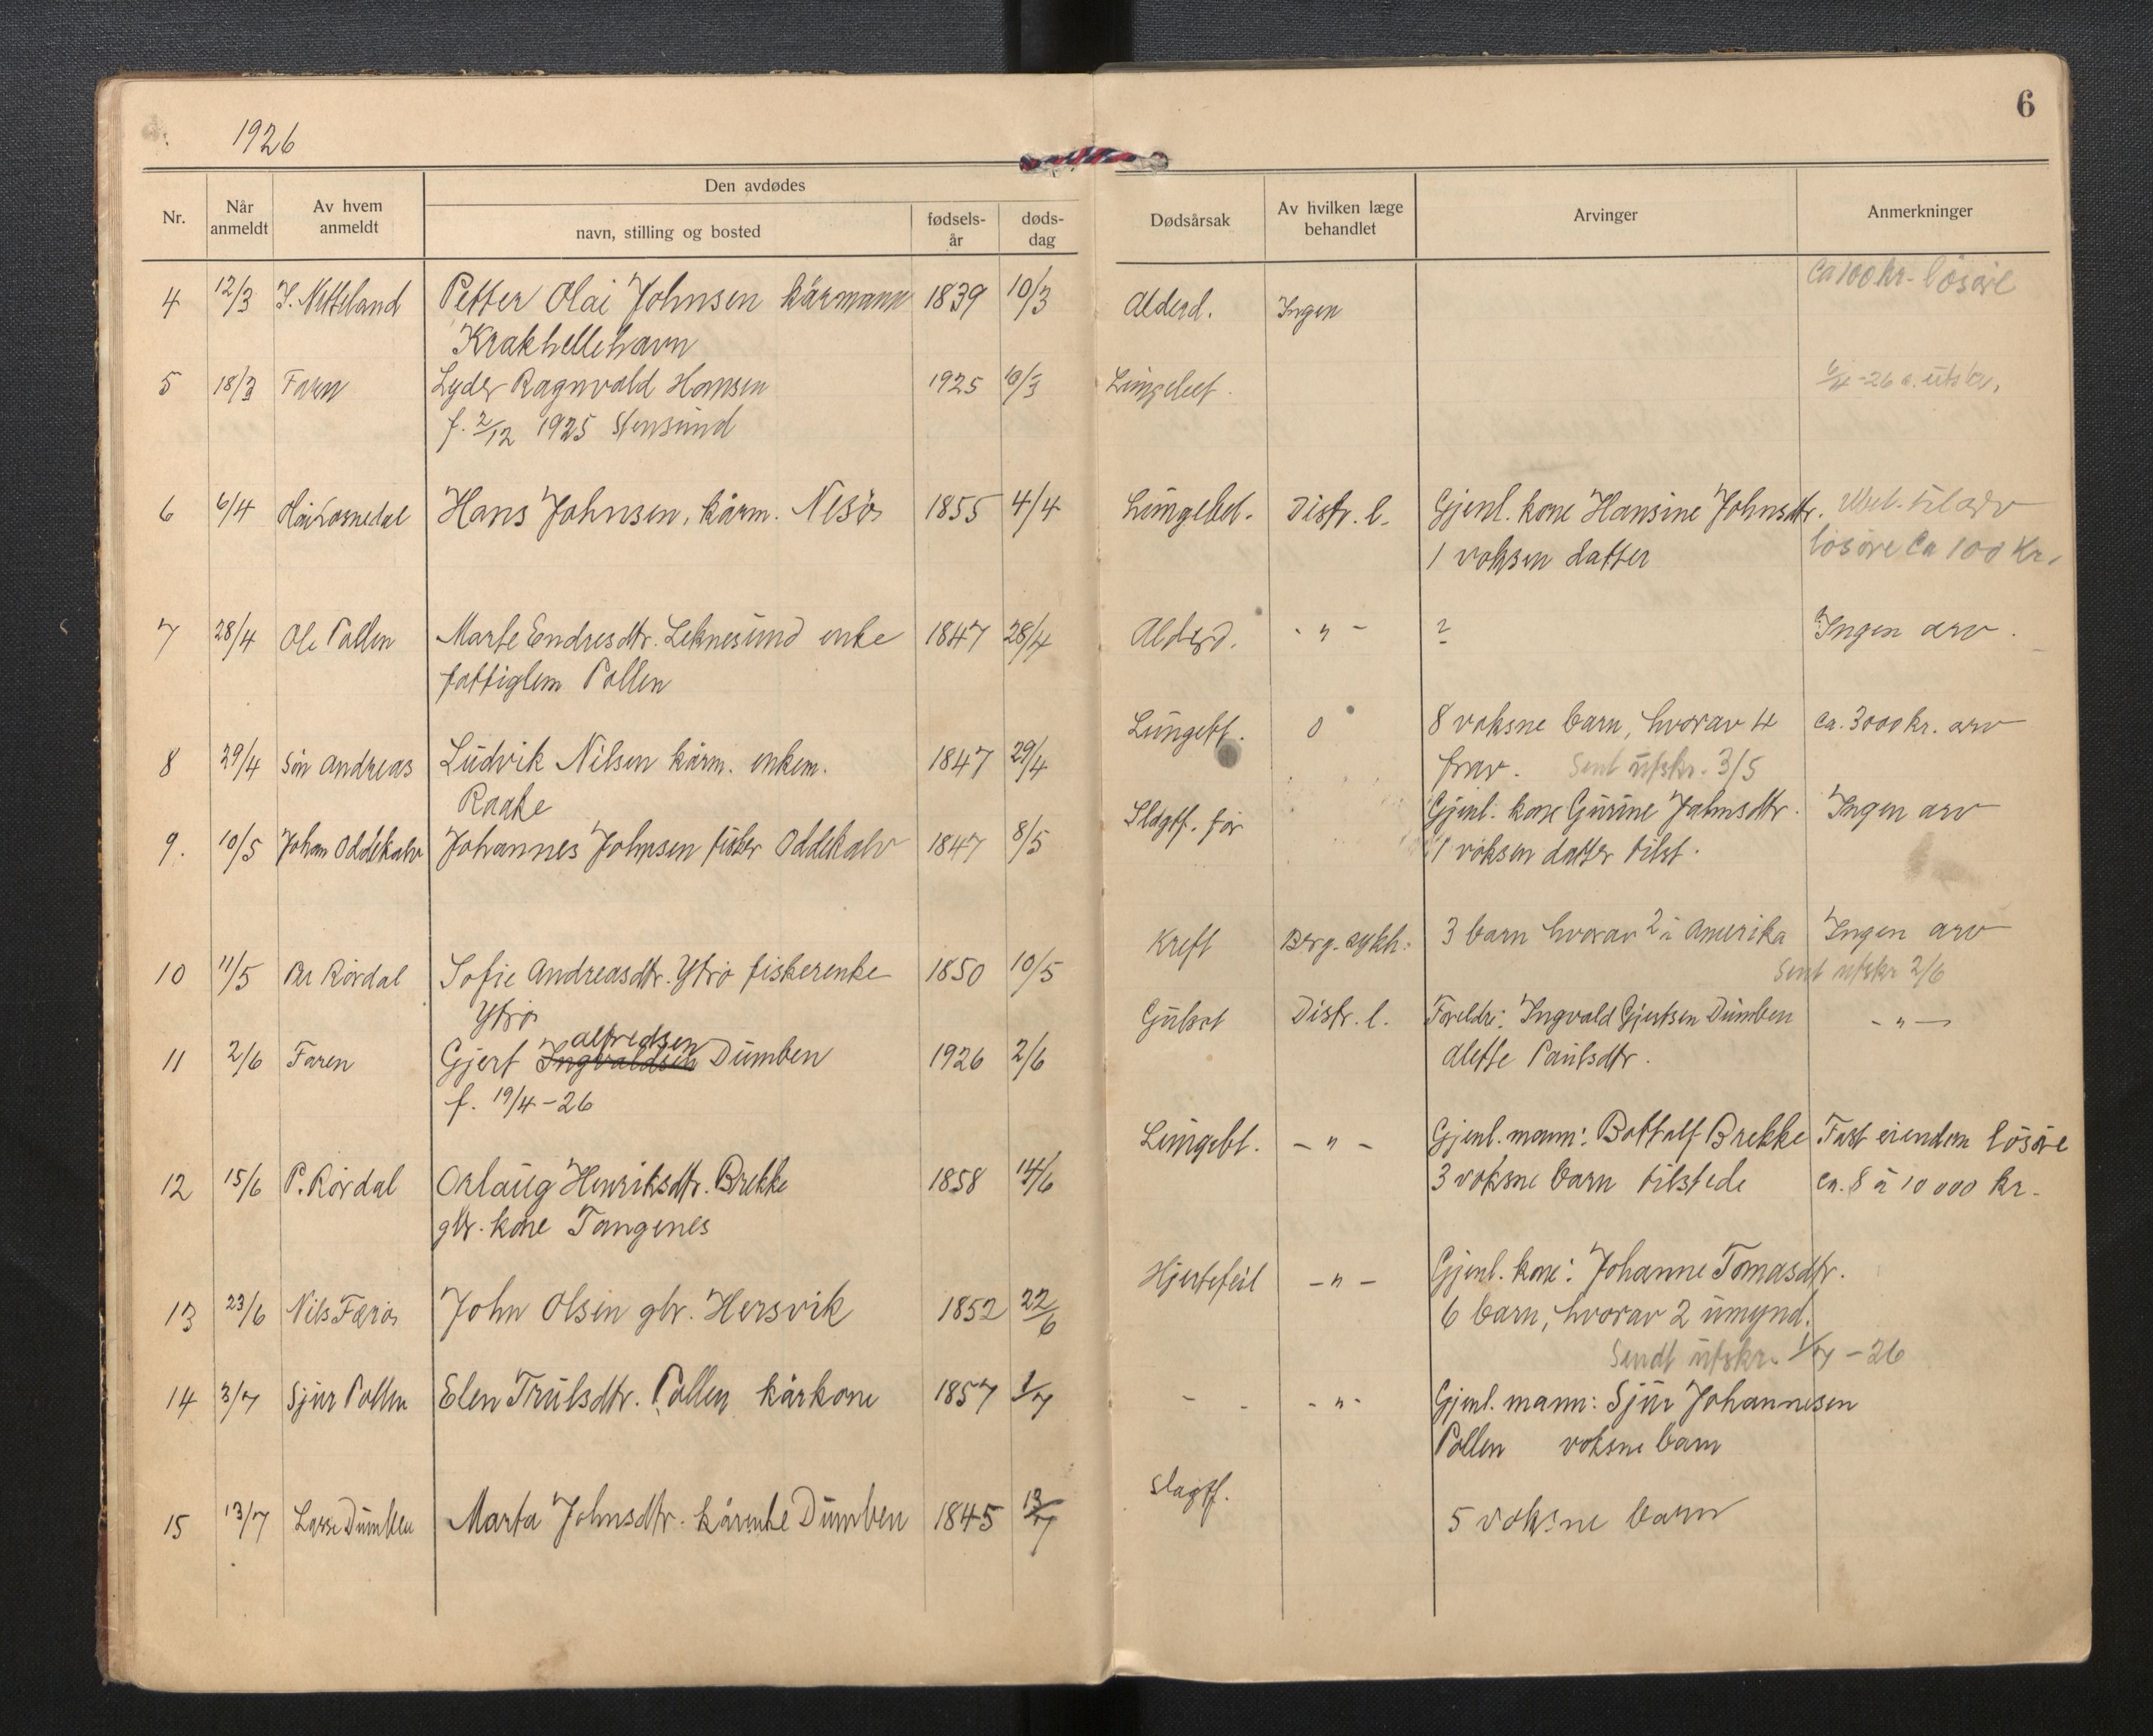 6
1926
Den avdødes
Nr.
Når anmeldt
Av hvem anmeldt
navn, stilling og bosted
fødsels-år
døds-dag
Dødsårsak
Av hvilken læge behandlet
Arvinger
Anmerkninger
Ca 100 kr. lösöre
4 12/3 Petter Olai Johnsen kårmann 1839 10/3 Alderd. Ingen
Krakhellehavn
5 18/3 Faren Lyder Ragnvald Hansen 1925 Lungebet.
f. 2/12 1925 Stensund
6 6/4 Hans Johnsen, kårm. Nesø 1855 4/4 Lungebet. Distr. l. Gjenl. kone Hansine Johnsdtr.
1 voksen datter lösöre Ca 100 Kr.
7 28/4 Ole Pollen Marte Endresdtr. Leknesund enke 1847 28/4 Alderd. - " - ? Ingen arv.
fattiglem Pollen
Lungebt. 0 8 voksne barn, hvorav 4 ca. 3000 kr. arv
8 29/4 Sön Andreas Ludvik Nilsen kårm. enkem. 1847 29/4 frav. Sent utskr. 3/5
Raake
Slagtf. før Gjenl. kone Gurine Johnsdtr. Ingen arv
9. 10/5 Johan Oddekalv Johannes Johnsen fisker Oddekalv 1847 8/5 1 voksen datter tilst.
Kreft Berg. sykh. 3 barn hvorav 2 i Amerika Ingen arv
10 11/5 Rørdal Sofie Andreasdtr. Ytrø fiskerenke 1850 10/5 Sent utskr 2/6
Ytrø
Gulsot Distr. l. Foreldre: Ingvald Gjertsen Dumben - " -
alfredsen
11 2/6 Faren Gjert Ingvaldsen Dumben 1926 2/6 Alette Paulsdtr.
f. 19/4 - 26
Lungebt. - " - Gjenl. mann: Bottolf Brekke Fast eiendom lösöre
12 15/6 P. Rørdal Orlaug Henriksdtr. Brekke 1858 14/6 3 voksne barn tilstede ca. 8 à 10 000 kr.
gbr. kone Tangenes
Hjertefeil - " - Gjenl. kone: Johanne Tomasdtr.
13 23/6 Nils Færø John Olsen gbr. Hersvik 1852 22/6 6 barn, hvorav 2 umynd.
Sendt utskr. 1/7 - 26
14 3/7 Sjur Pollen Elen Trulsdtr. Pollen kårkone 1857 1/7 - - - " - Gjenl. mann: Sjur Johannesen
Pollen voksne barn
Slagtf.
15 13/7 Lasse Dumben Marta Johnsdtr. kårenke Dumben 1845 13/7 5 voksne barn